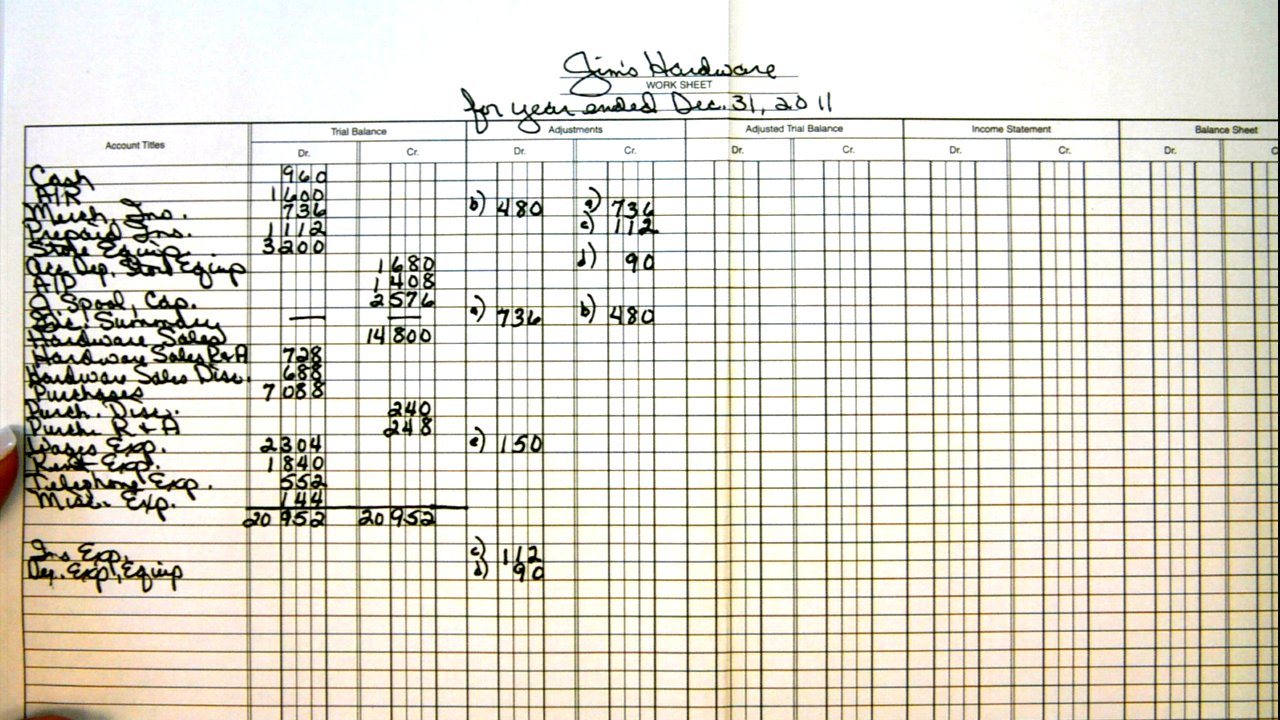 Jim's Hardware
WORK SHEET
for year ended Dec. 31, 2011
Account Titles Trial Balance Adjustments Adjusted Trial Balance Income Statement Balance Sheet
Dr. Cr. Dr. Cr. Dr. Cr. Dr. Cr. Dr. C
Cash 960
A/R 1600
Merch. Ins. 736 b) 480 a) 736
Prepaid Ins. 1112 c) 112
Store Equip. 3200
Acc. Dep., Store Equip 1680 d) 90
A/P 1408
J. Spool, Cap. 2576
Inc. Summary — — a) 736 b) 480
Hardware Sales 14800
Hardware Sales R+A 728
Hardware Sales Disc. 688
Purchases 7088
Purch. Disc. 240
Purch. R + A 248
Wages Exp. 2304 e) 150
Rent Exp. 1840
Telephone Exp. 552
Misc. Exp. 144
20952 20952
Ins. Exp. c) 112
Dep. Exp., Equip d) 90